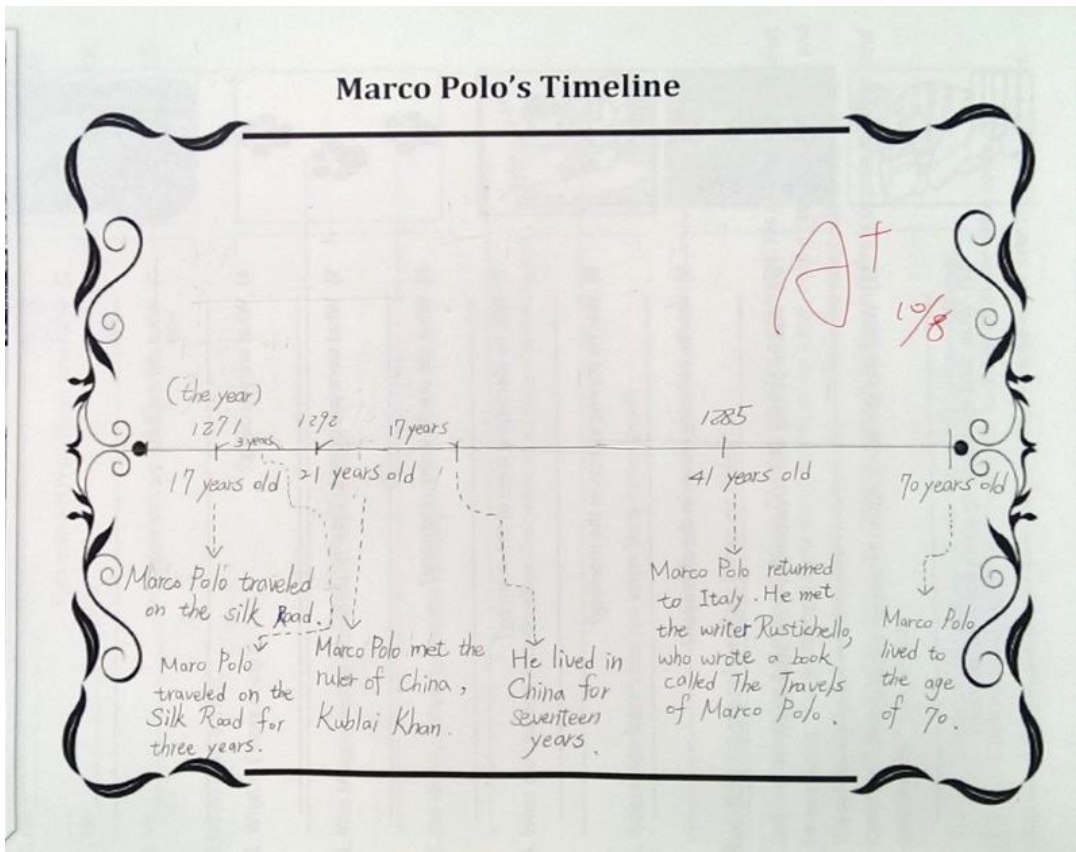 Marco Polo's Timeline
A+
10/8
(the year)
1271
3 years
1292
17 years
1285
17 years old
21 years old
41 years old
70 years old
Marco Polo traveled
on the silk Road.
Maro Polo
traveled on the
Silk Road for
three years.
Marco Polo met the
ruler of China,
Kublai Khan.
He lived in
China for
seventeen
years.
Marco Polo returned
to Italy. He met
the writer Rustichello,
who wrote a book
called The Travels
of Marco Polo.
Marco Polo
lived to
the age
of 70.